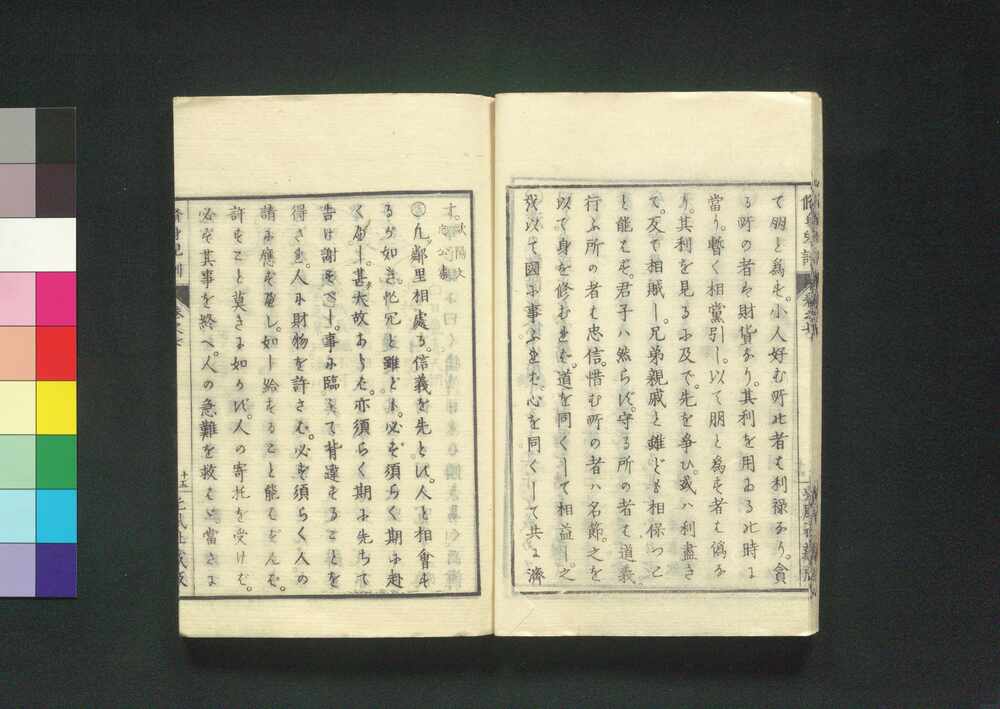 て朋と為す。小人好む所の者は利禄なり。貪
る所の者は財貨なり。其利を用ゐるの時に
當り。暫く相黨引し。以て朋と為す者は偽な
り。其利を見るに及で。先を爭ひ。或ハ利盡き
て。反て相賊し。兄弟親戚と雖ども相保つこ
と能はず。君子ハ然らず。守る所の者は道義。
行ふ所の者は忠信。惜む所の者ハ名節。之を
以て身を修むれば。道を同くして相益し。之
を以て國に事ふれば。心を同くして共に濟
す。
歐陽文
忠公書
凡鄰里相處る。信義を先とし。人と相會す
るが如き。忙冗と雖ども。必ず須らく期に赴
くべし。甚大故あらば。亦須らく期に先ちて
告げ謝すべし。事に臨みて背違することを
得ざれ。人に財物を許さば。必ず須らく人の
請に應ずべし。如し給すること能はずんば。
許すこと莫きに如かず。人の寄托を受けば。
必ず其事を終へ。人の急難を救はば當さに
卷之七
十五